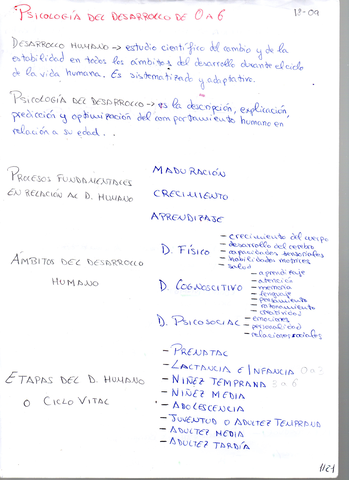 PSICOLOGÍA DEL DESARROLLO DE 0 A 6
18-09
DESARROLLO HUMANO → estudio científico del cambio y de la
estabilidad en todos los ámbitos del desarrollo durante el ciclo
de la vida humana. Es sistematizado y adaptativo.
PSICOLOGÍA DEL DESARROLLO → es la descripción, explicación,
predicción y optimización del comportamiento humano en
relación a su edad...
PROCESOS FUNDAMENTALES
EN RELACIÓN AL D. HUMANO
MADURACIÓN
CRECIMIENTO
APRENDIZAJE
ÁMBITOS DEL DESARROLLO
HUMANO
D. FÍSICO
- crecimiento del cuerpo
- desarrollo del cerebro
- capacidades sensoriales
- habilidades motrices
- salud
D. COGNOSCITIVO
- aprendizaje
- atención
- memoria
- lenguaje
- pensamiento
- razonamiento
- creatividad
D. PSICOSOCIAL
- emociones
- personalidad
- relaciones sociales
ETAPAS DEL D. HUMANO
O CICLO VITAL
- PRENATAL
- LACTANCIA E INFANCIA 0 a 3
- NIÑEZ TEMPRANA 3 a 6
- NIÑEZ MEDIA
- ADOLESCENCIA
- JUVENTUD O ADULTEZ TEMPRANA
- ADULTEZ MEDIA
- ADULTEZ TARDÍA